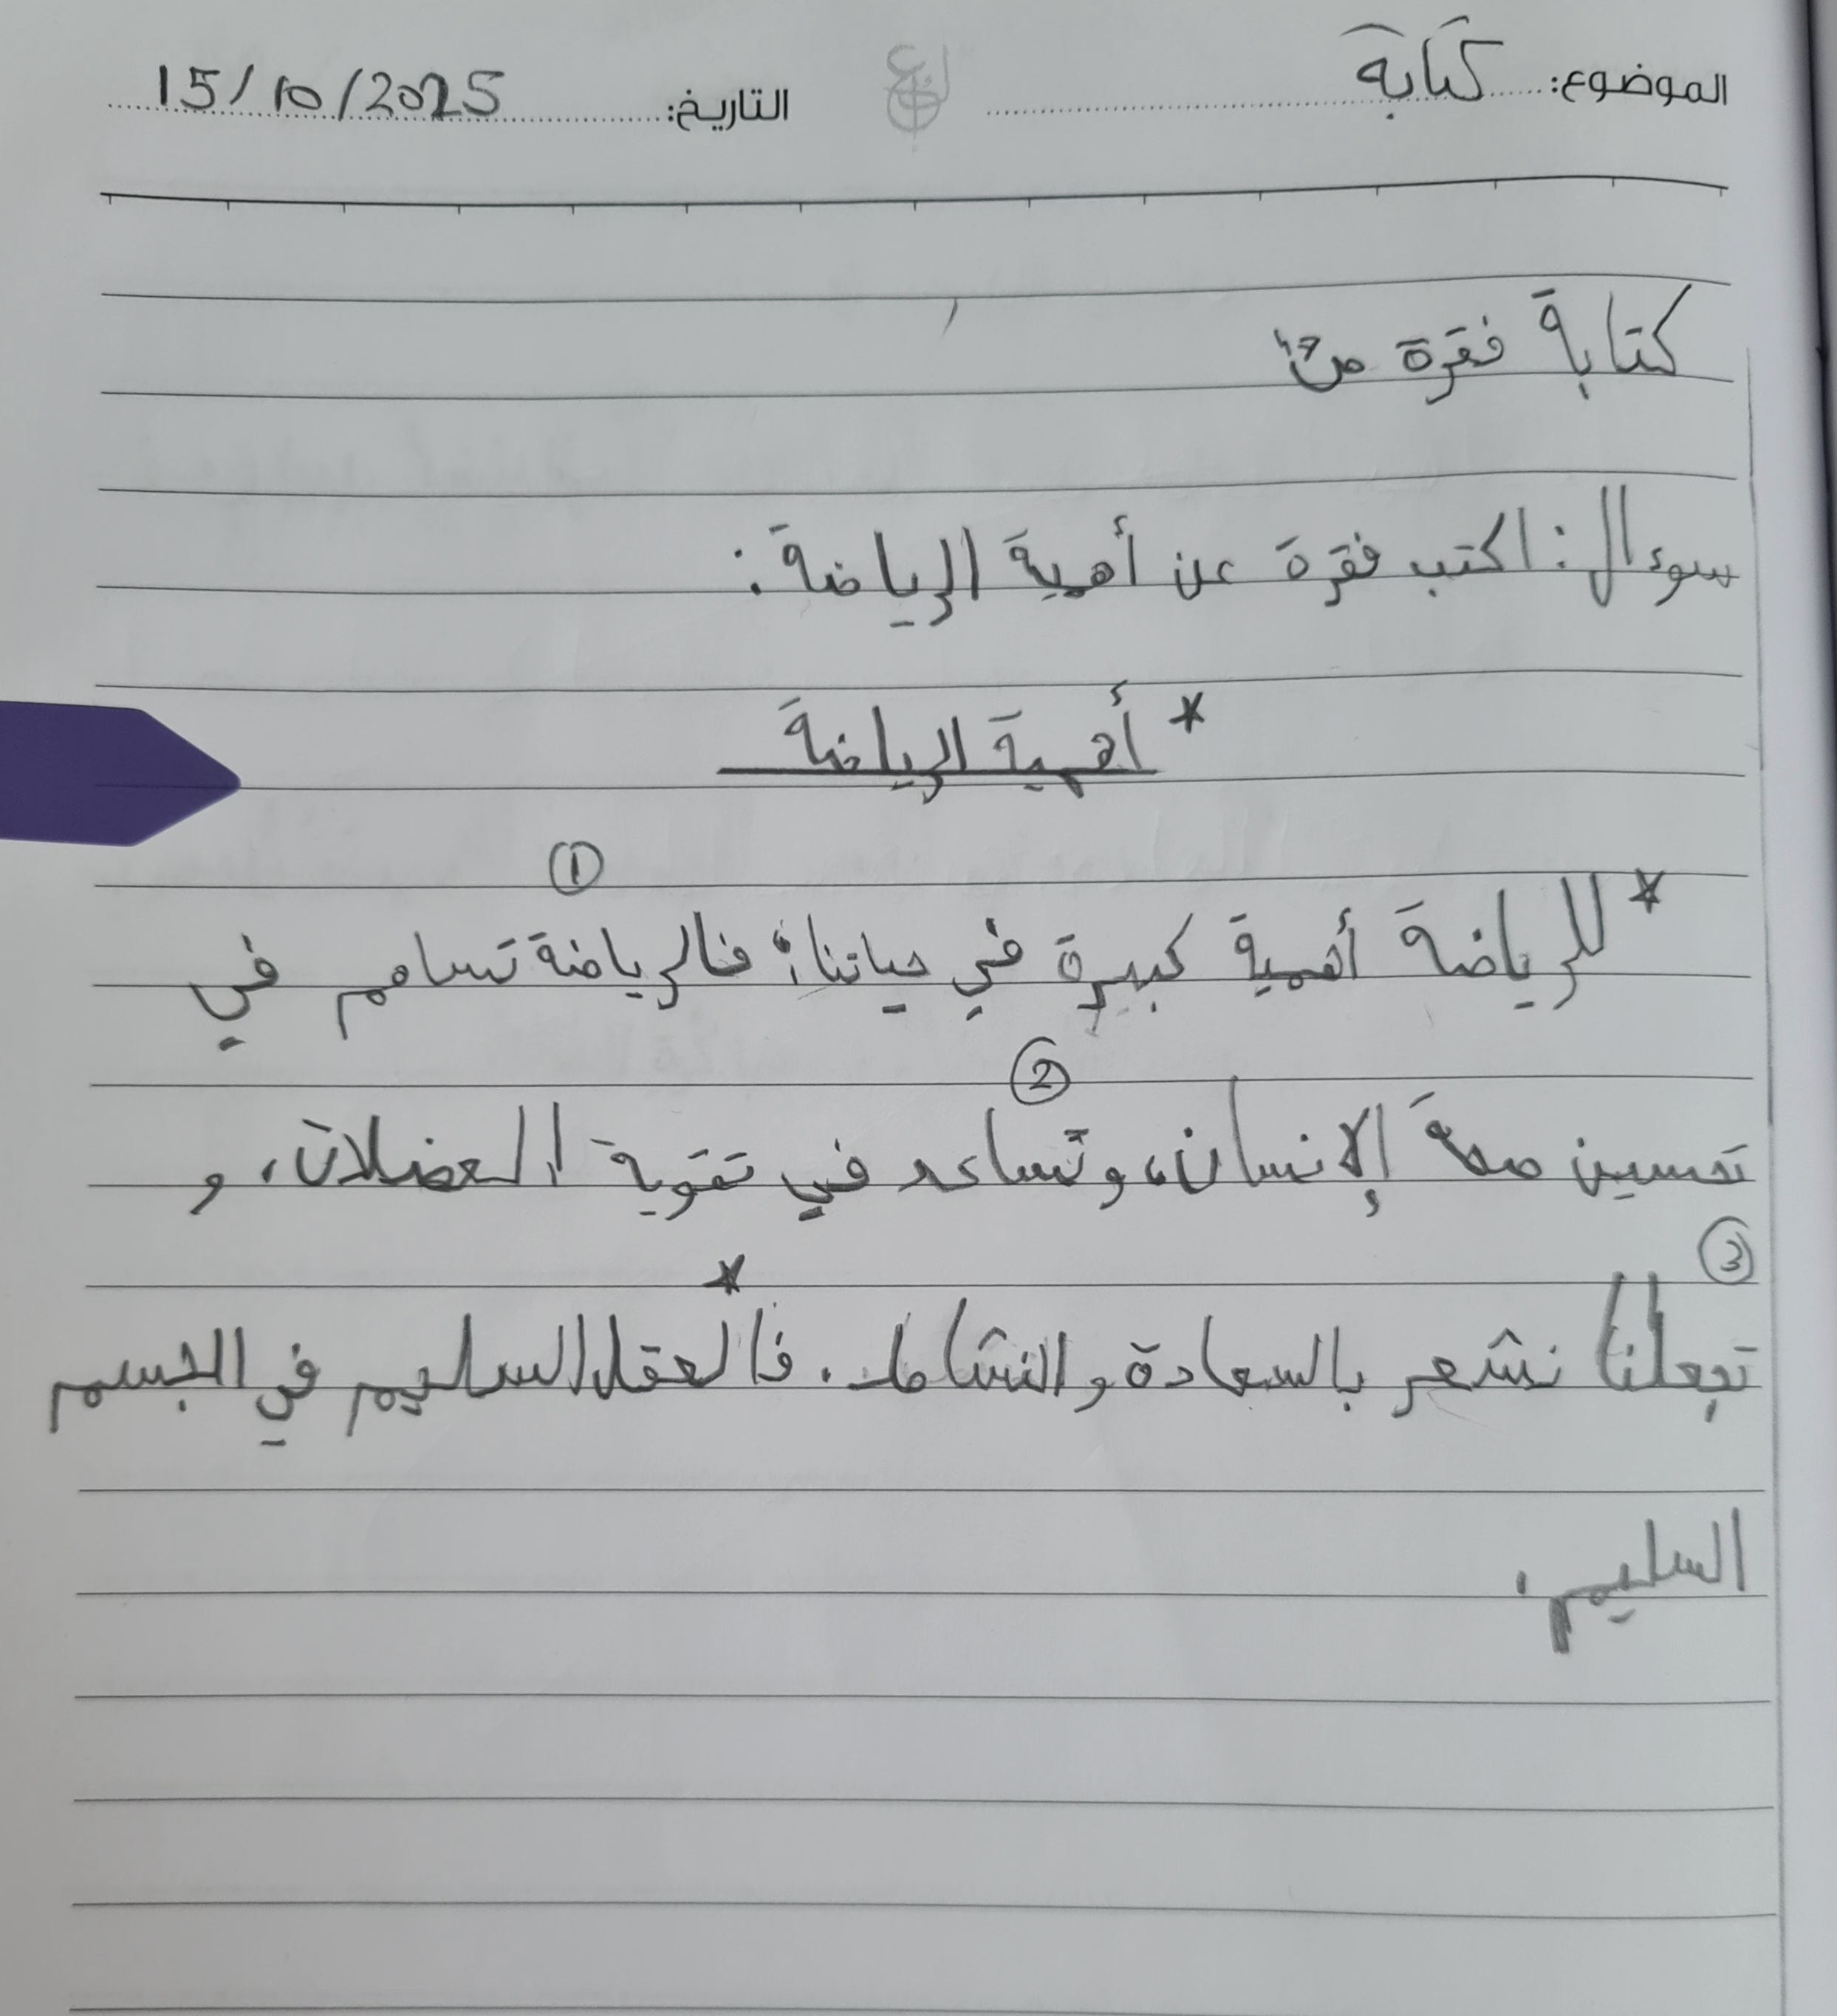 الموضوع: كتابة التاريخ: 15/10/2025
كتابة فقرة ص
سوءال: اكتب فقرة عن أهمية الرياضة:
* أهمية الرياضة
①
* للرياضة أهمية كبيرة في حياتنا؛ فالرياضة تساهم في
②
تحسين صحة الإنسان، وتساعد في تقوية العضلات، و
③
*
تجعلنا نشعر بالسعادة والنشاط. فالعقل السليم في الجسم
السليم.